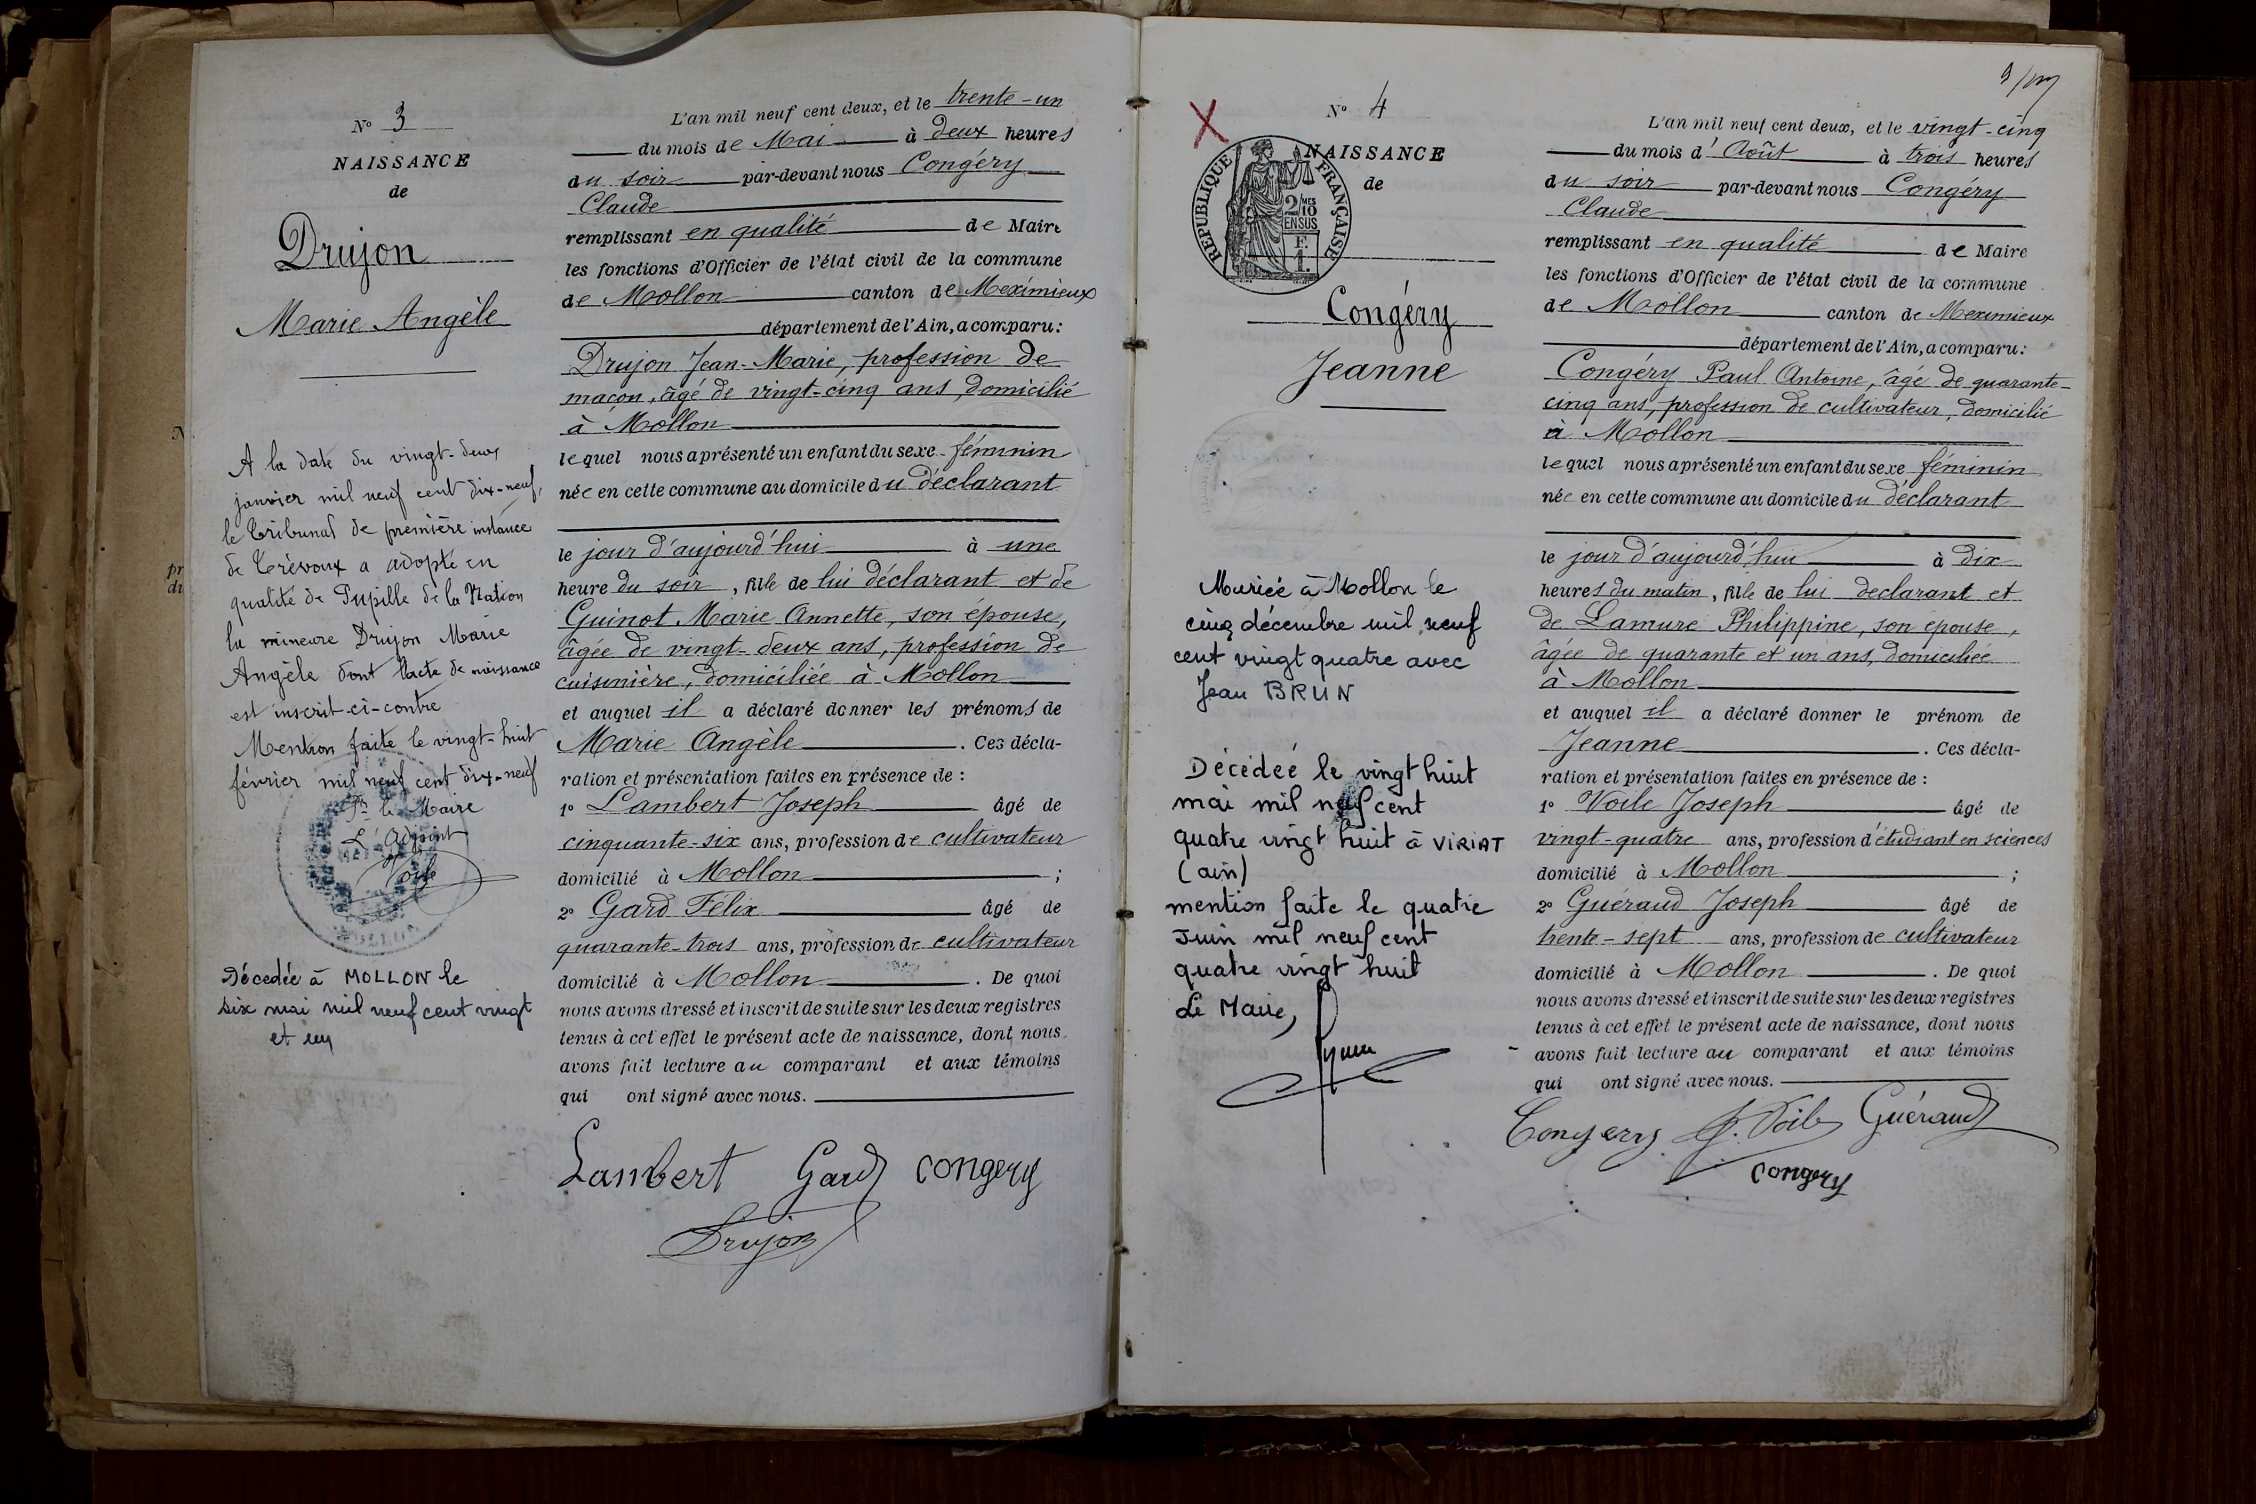 N° 3
NAISSANCE
de
Drujon
Marie Angèle
A la date du vingt-deux
janvier mil neuf cent dix-neuf,
le Tribunal de première instance
de Trévoux a adopté en
qualité de Pupille de la Nation
la mineure Drujon Marie
Angèle dont l'acte de naissance
est inscrit ci-contre
Mention faite le vingt-huit
février mil neuf cent dix-neuf
Pr le Maire
L'Adjoint
Voile
MOLLON
Décédée à MOLLON le
six mai mil neuf cent vingt
et un
L'an mil neuf cent deux, et le trente-un
du mois de Mai à deux heures
du soir par-devant nous Congéry
Claude
remplissant en qualité de Maire
les fonctions d'Officier de l'état civil de la commune
de Mollon canton de Meximieux
département de l'Ain, a comparu:
Drujon Jean-Marie, profession de
maçon, âgé de vingt-cinq ans, domicilié
à Mollon
lequel nous a présenté un enfant du sexe féminin
née en cette commune au domicile du déclarant
le jour d'aujourd'hui à une
heure du soir, fille de lui déclarant et de
Guinot Marie Annette, son épouse,
âgée de vingt-deux ans, profession de
cuisinière, domiciliée à Mollon
et auquel il a déclaré donner les prénoms de
Marie Angèle. Ces décla-
ration et présentation faites en présence de :
1° Lambert Joseph âgé de
cinquante-six ans, profession de cultivateur
domicilié à Mollon ;
2° Gard Félix âgé de
quarante-trois ans, profession de cultivateur
domicilié à Mollon. De quoi
nous avons dressé et inscrit de suite sur les deux registres
tenus à cet effet le présent acte de naissance, dont nous
avons fait lecture au comparant et aux témoins
qui ont signé avec nous.
Lambert Gard Congery
Drujon
N° 4
NAISSANCE
de
REPUBLIQUE FRANÇAISE
2/10 MES
EN SUS
F.
1.
Congéry
Jeanne
Mariée à Mollon le
cinq décembre mil neuf
cent vingt quatre avec
Jean BRUN
Décédée le vingt huit
mai mil neuf cent
quatre vingt huit à VIRIAT
(ain)
mention faite le quatre
Juin mil neuf cent
quatre vingt huit
Le Maire,
L'an mil neuf cent deux, et le vingt-cinq
du mois d'Août à trois heures
du soir par-devant nous Congéry
Claude
remplissant en qualité de Maire
les fonctions d'Officier de l'état civil de la commune
de Mollon canton de Meximieux
département de l'Ain, a comparu:
Congéry Paul Antoine, âgé de quarante-
cinq ans, profession de cultivateur, domicilié
à Mollon
lequel nous a présenté un enfant du sexe féminin
née en cette commune au domicile du déclarant
le jour d'aujourd'hui à dix
heures du matin, fille de lui declarant et
de Lamure Philippine, son épouse,
âgée de quarante et un ans, domiciliée
à Mollon
et auquel il a déclaré donner le prénom de
Jeanne. Ces décla-
ration et présentation faites en présence de :
1° Voile Joseph âgé de
vingt-quatre ans, profession d'étudiant en sciences
domicilié à Mollon ;
2° Guéraud Joseph âgé de
trente-sept ans, profession de cultivateur
domicilié à Mollon. De quoi
nous avons dressé et inscrit de suite sur les deux registres
tenus à cet effet le présent acte de naissance, dont nous
avons fait lecture au comparant et aux témoins
qui ont signé avec nous.
Congery J. Voile Guéraud
Congery